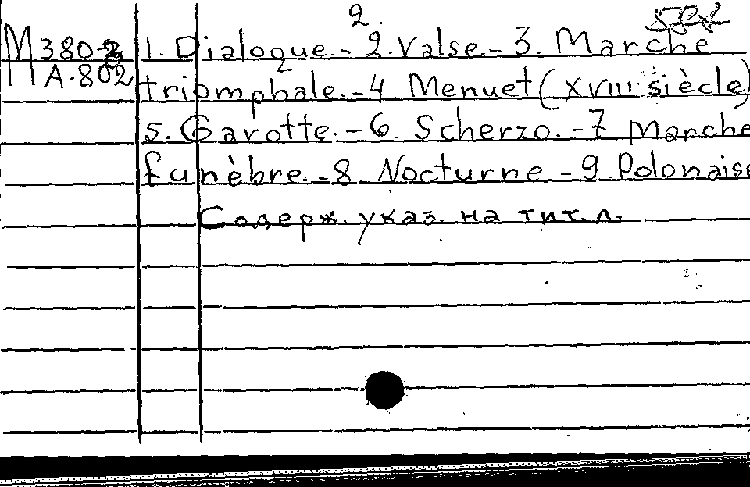 2.
M 380-2 1. Dialogue.- 2. Valse.- 3. Marche
A-802 triomphale.-4 Menuet (XVIII siècle)
5. Gavotte.-6. Scherzo.-7 Marche
funèbre.-8 Nocturne -9 Polonaise
Содерж. указ. на тит. л.